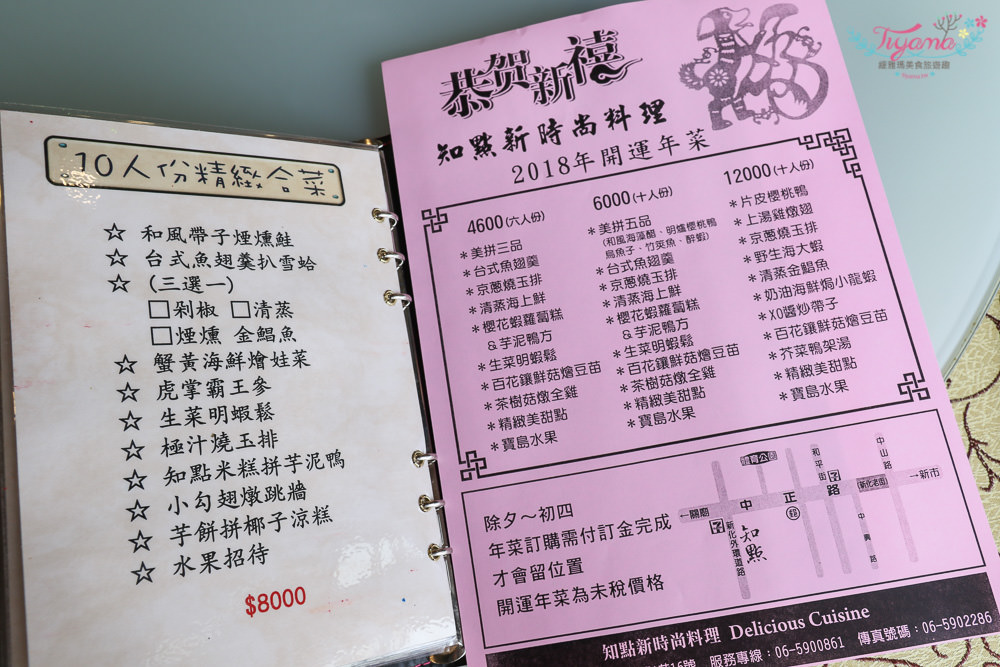 10人份精緻合菜
☆ 和風帶子煙燻鮭
☆ 台式魚翅羹扒雪蛤
☆ (三選一)
□剁椒 □清蒸
□煙燻 金鯧魚
☆ 蟹黃海鮮燴娃菜
☆ 虎掌霸王參
☆ 生菜明蝦鬆
☆ 極汁燒玉排
☆ 知點米糕拼芋泥鴨
☆ 小勾翅燉跳牆
☆ 芋餅拼椰子涼糕
☆ 水果招待
$8000
恭贺新禧
知點新時尚料理
2018年開運年菜
4600(六人份)
*美拼三品
*台式魚翅羹
*京蔥燒玉排
*清蒸海上鮮
*櫻花蝦蘿蔔糕
&芋泥鴨方
*生菜明蝦鬆
*百花鑲鮮菇燴豆苗
*茶樹菇燉全雞
*精緻美甜點
*寶島水果
6000(十人份)
*美拼五品
(和風海藻醋、明爐櫻桃鴨
烏魚子、竹筴魚、醉蝦)
*台式魚翅羹
*京蔥燒玉排
*清蒸海上鮮
*櫻花蝦蘿蔔糕
&芋泥鴨方
*生菜明蝦鬆
*百花鑲鮮菇燴豆苗
*茶樹菇燉全雞
*精緻美甜點
*寶島水果
12000(十人份)
*片皮櫻桃鴨
*上湯雞燉翅
*京蔥燒玉排
*野生海大蝦
*清蒸金鯧魚
*奶油海鮮焗小龍蝦
*XO醬炒帶子
*百花鑲鮮菇燴豆苗
*芥菜鴨架湯
*精緻美甜點
*寶島水果
除夕～初四
年菜訂購需付訂金完成
才會留位置
開運年菜為未稅價格
體育公園
和平街
中山路
←關廟
中正路
新化老街
→新市
新化外環道路
知點
中興路
知點新時尚料理 Delicious Cuisine
16號 服務專線：06-5900861 傳真號碼：06-5902286
Tiyama
緹雅瑪美食旅遊趣